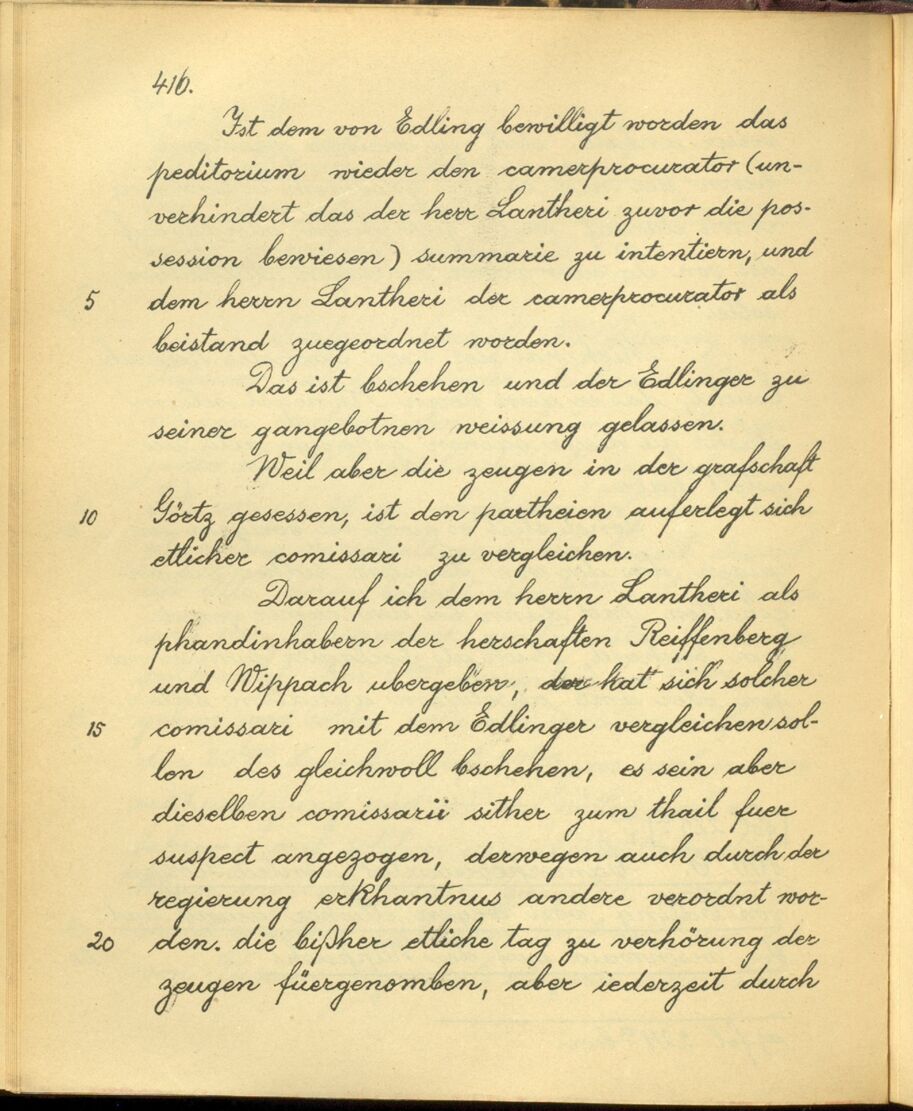 410.
Ist dem von Edling bewilligt worden das
peditorium wieder den camerprocurator (un-
verhindert das der herr Lantheri zuvor die pos-
session bewiesen) summarie zu intentiern, und
5 dem herrn Lantheri der camerprocurator als
beistand zuegeordnet worden.
Das ist bschehen und der Edlinger zu
seiner gangebotnen weissung gelassen.
Weil aber die zeugen in der grafschaft
10 Görtz gesessen, ist den partheien auferlegt sich
etlicher comissari zu vergleichen.
Darauf ich dem herrn Lantheri als
phandinhabern der herschaften Reiffenberg
und Wippach ubergeben, hat sich solcher
15 comissari mit dem Edlinger vergleichen sol-
len des gleichwoll bschehen, es sein aber
dieselben comissarii sither zum thail fuer
suspect angezogen, derwegen auch durch der
regierung erkhantnus andere verordnt wor-
20 den. die bißher etliche tag zu verhörung der
zeugen füergenomben, aber iederzeit durch